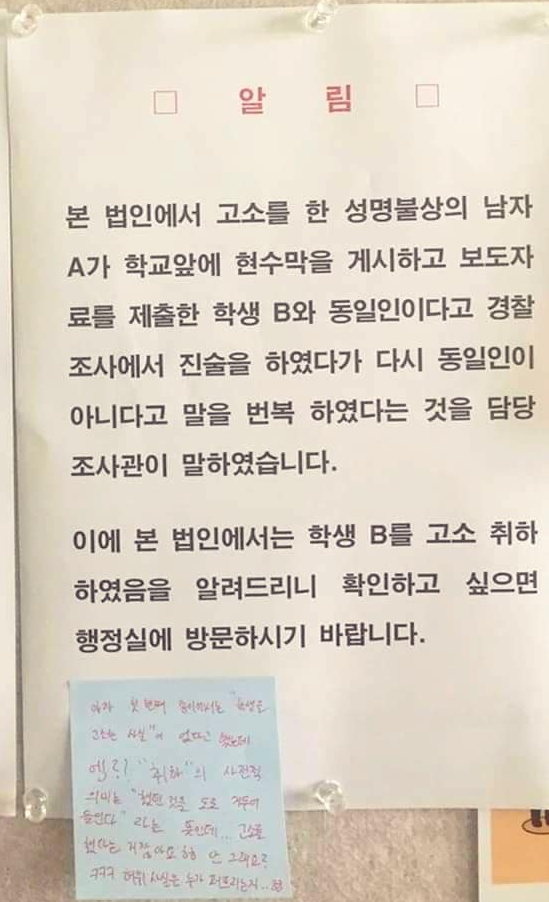 □ 알 림 □
본 법인에서 고소를 한 성명불상의 남자
A가 학교앞에 현수막을 게시하고 보도자
료를 제출한 학생 B와 동일인이다고 경찰
조사에서 진술을 하였다가 다시 동일인이
아니다고 말을 번복 하였다는 것을 담당
조사관이 말하였습니다.
이에 본 법인에서는 학생 B를 고소 취하
하였음을 알려드리니 확인하고 싶으면
행정실에 방문하시기 바랍니다.
아까 첫번째 종이에서는 "학생을
고소한 사실"이 없다고 했는데
엥?? "취하"의 사전적
의미는 "했던 것을 도로 거두어
들인다" 라는 뜻인데... 고소를
했다는 거잖아요 하하 안 그래요?
ㅋㅋㅋ 허위사실은 누가 퍼뜨리는지..